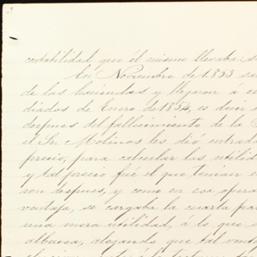 contabilidad que él mismo llevaba, se
En Noviembre de 1.833 se
de las haciendas y llegaron á
diados de Enero de 1834, es decir
despues del fallecimiento de la
el Sr. Molinos les dió entrada
precio, para calcular las utilid
y tal precio fué el que tenian
son despues, y como en esa opera
ventaja, se cargaba la cuarta pa
una mera utilidad, á lo que
albacea, alegando que tal vent